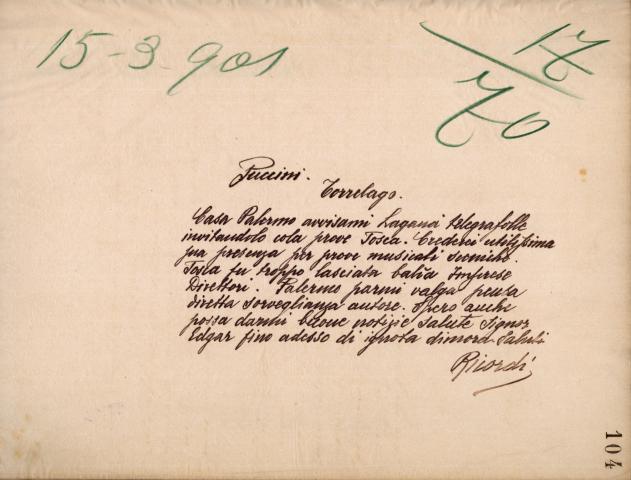 15-3-901
17
70
Puccini.
Torrelago.
Casa Palermo avvisami Laganà telegrafolle
invitandolo colà prove Tosca. Crederei utilissima
sua presenza per prove musicali sceniche.
Tosca fu troppo lasciata balìa Imprese
Direttori. Palermo parmi valga pena
diretta sorveglianza autore. Spero anche
possa darmi buone notizie salute Signor
Edgar fino adesso di ignota dimora Saluti
Ricordi
104